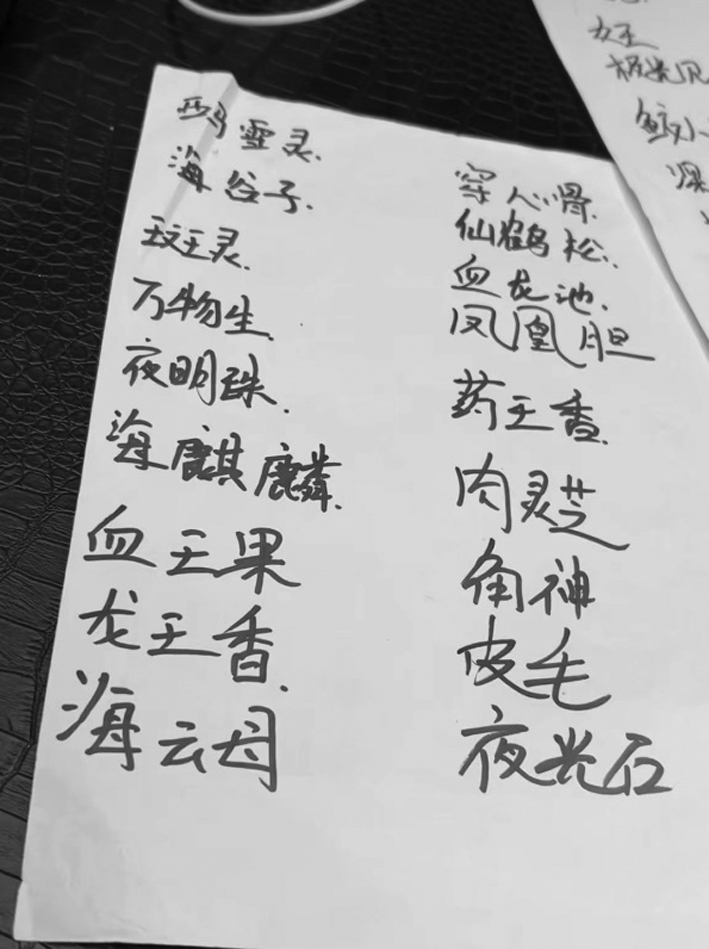 海谷子.
斑王灵.
万物生.
夜明珠.
海麒麟.
血王果
龙王香.
海云母
穿心骨.
仙鹤松.
血龙池.
凤凰胆
药王香.
肉灵芝
角神
皮毛
夜光石
女王